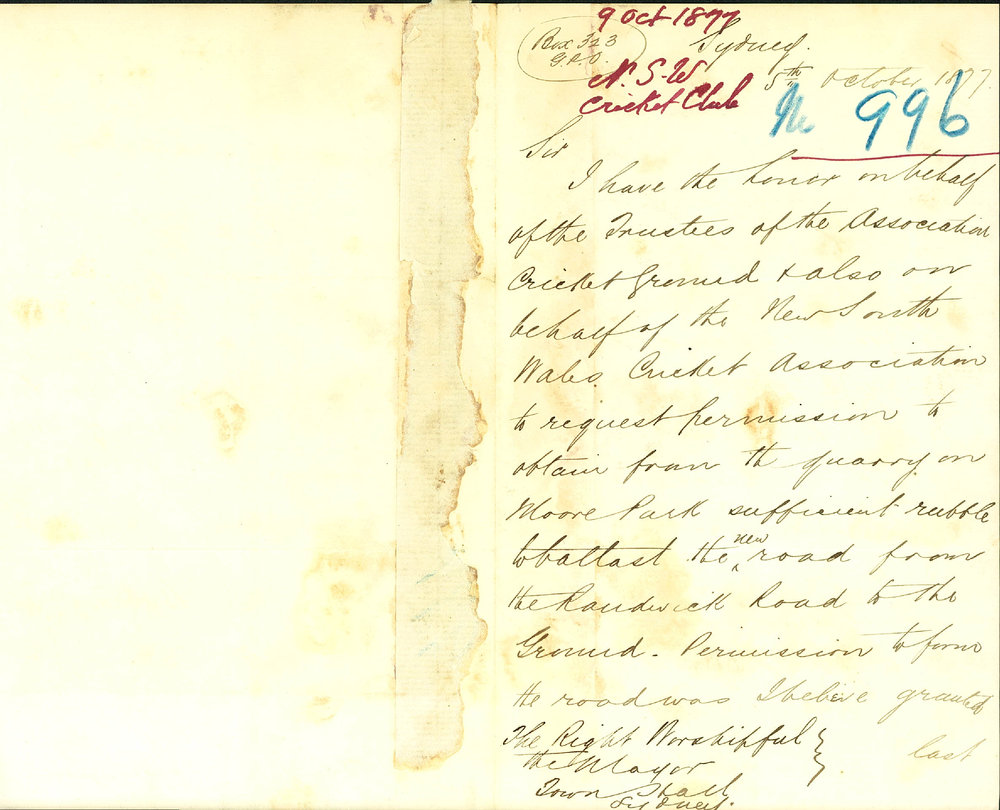 9 Oct 1877
Box 323
G.P.O.
Sydney.
N. S. W
Cricket Club
5th October 1877.
No 996
Sir
I have the honor on behalf
of the Trustees of the Association
Cricket Ground & also on
behalf of the New South
Wales Cricket Association
to request permission to
obtain from the quarry on
Moore Park sufficient rubble
to ballast the new road from
the Randwick Road to the
Ground. Permission to form
the road was I believe granted
last
The Right Worshipful
the Mayor
Town Hall
Sydney.